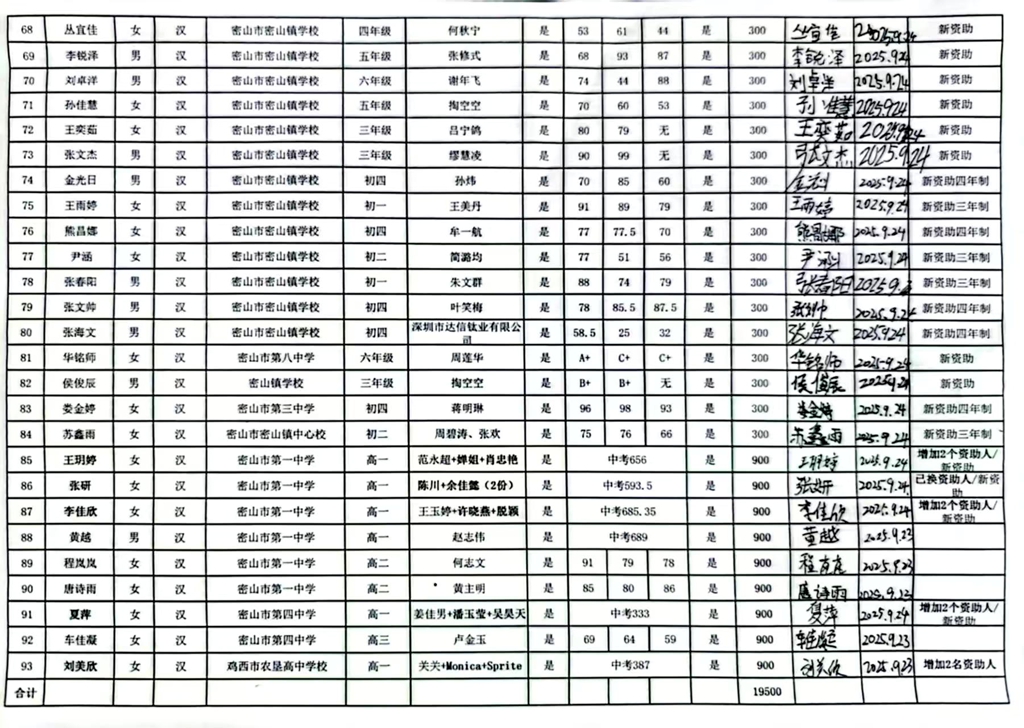 68 丛宜佳 女 汉 密山市密山镇学校 四年级 何秋宁 是 53 61 44 是 300 丛宜佳 2025.9.24 新资助
69 李锐泽 男 汉 密山市密山镇学校 五年级 张修式 是 68 93 87 是 300 李锐泽 2025.9.24 新资助
70 刘卓洋 男 汉 密山市密山镇学校 六年级 谢年飞 是 74 44 88 是 300 刘卓洋 2025.9.24 新资助
71 孙佳慧 女 汉 密山市密山镇学校 五年级 掏空空 是 70 60 53 是 300 孙佳慧 2025.9.24 新资助
72 王奕茹 女 汉 密山市密山镇学校 三年级 吕宁鸽 是 80 79 无 是 300 王奕茹 2025.9.24 新资助
73 张文杰 男 汉 密山市密山镇学校 三年级 缪慧凌 是 90 99 无 是 300 张文杰 2025.9.24 新资助
74 金光日 男 汉 密山市密山镇学校 初四 孙炜 是 70 85 60 是 300 2025.9.24 新资助四年制
75 王雨婷 女 汉 密山市密山镇学校 初一 王美丹 是 91 89 79 是 300 王雨婷 2025.9.24 新资助三年制
76 熊昌娜 女 汉 密山市密山镇学校 初四 牟一航 是 77 77.5 70 是 300 2025.9.24 新资助四年制
77 尹涵 女 汉 密山市密山镇学校 初二 简潞均 是 77 51 56 是 300 尹涵 2025.9.24 新资助三年制
78 张春阳 男 汉 密山市密山镇学校 初一 朱文群 是 88 74 79 是 300 张春阳 新资助三年制
79 张文帅 男 汉 密山市密山镇学校 初四 叶笑梅 是 78 85.5 87.5 是 300 张文帅 2025.9.24 新资助四年制
80 张海文 男 汉 密山市密山镇学校 初四 深圳市达信钛业有限公司 是 58.5 25 32 是 300 张海文 2025.9.24 新资助四年制
81 华铭师 女 汉 密山市第八中学 六年级 周莲华 是 A+ C+ C+ 是 300 华铭师 2025.9.24 新资助
82 侯俊辰 男 汉 密山镇学校 三年级 掏空空 是 B+ B+ 无 是 300 侯俊辰 2025.9.24 新资助
83 娄金婷 女 汉 密山市第三中学 初四 蒋明琳 是 96 98 93 是 300 娄金婷 2025.9.24 新资助四年制
84 苏鑫雨 女 汉 密山市密山镇中心校 初二 周碧涛、张欢 是 75 76 66 是 300 苏鑫雨 2025.9.24 新资助三年制
85 王玥婷 女 汉 密山市第一中学 高一 范永超+婵姐+肖忠艳 是 中考656 是 900 王玥婷 2025.9.24 增加2个资助人/新资助
86 张研 女 汉 密山市第一中学 高一 陈川+余佳懿（2份） 是 中考593.5 是 900 张妍 2025.9.24 已换资助人/新资助
87 李佳欣 女 汉 密山市第一中学 高一 王玉婷+许晓燕+脱颖 是 中考685.35 是 900 李佳欣 2025.9.24 增加2个资助人/新资助
88 黄越 男 汉 密山市第一中学 高一 赵志伟 是 中考689 是 900 黄越 2025.9.23
89 程岚岚 女 汉 密山市第一中学 高二 何志文 是 91 79 78 是 900 程岚岚 2025.9.23
90 唐诗雨 女 汉 密山市第一中学 高二 黄主明 是 85 80 86 是 900 唐诗雨 2025.9.23
91 夏萍 女 汉 密山市第四中学 高一 姜佳男+潘玉莹+吴昊天 是 中考333 是 900 夏萍 2025.9.24 增加2个资助人/新资助
92 车佳凝 女 汉 密山市第四中学 高三 卢金玉 是 69 64 59 是 900 车佳凝 2025.9.23
93 刘美欣 女 汉 鸡西市农垦高中学校 高一 关关+Monica+Sprite 是 中考387 是 900 刘美欣 2025.9.23 增加2名资助人
合计 19500